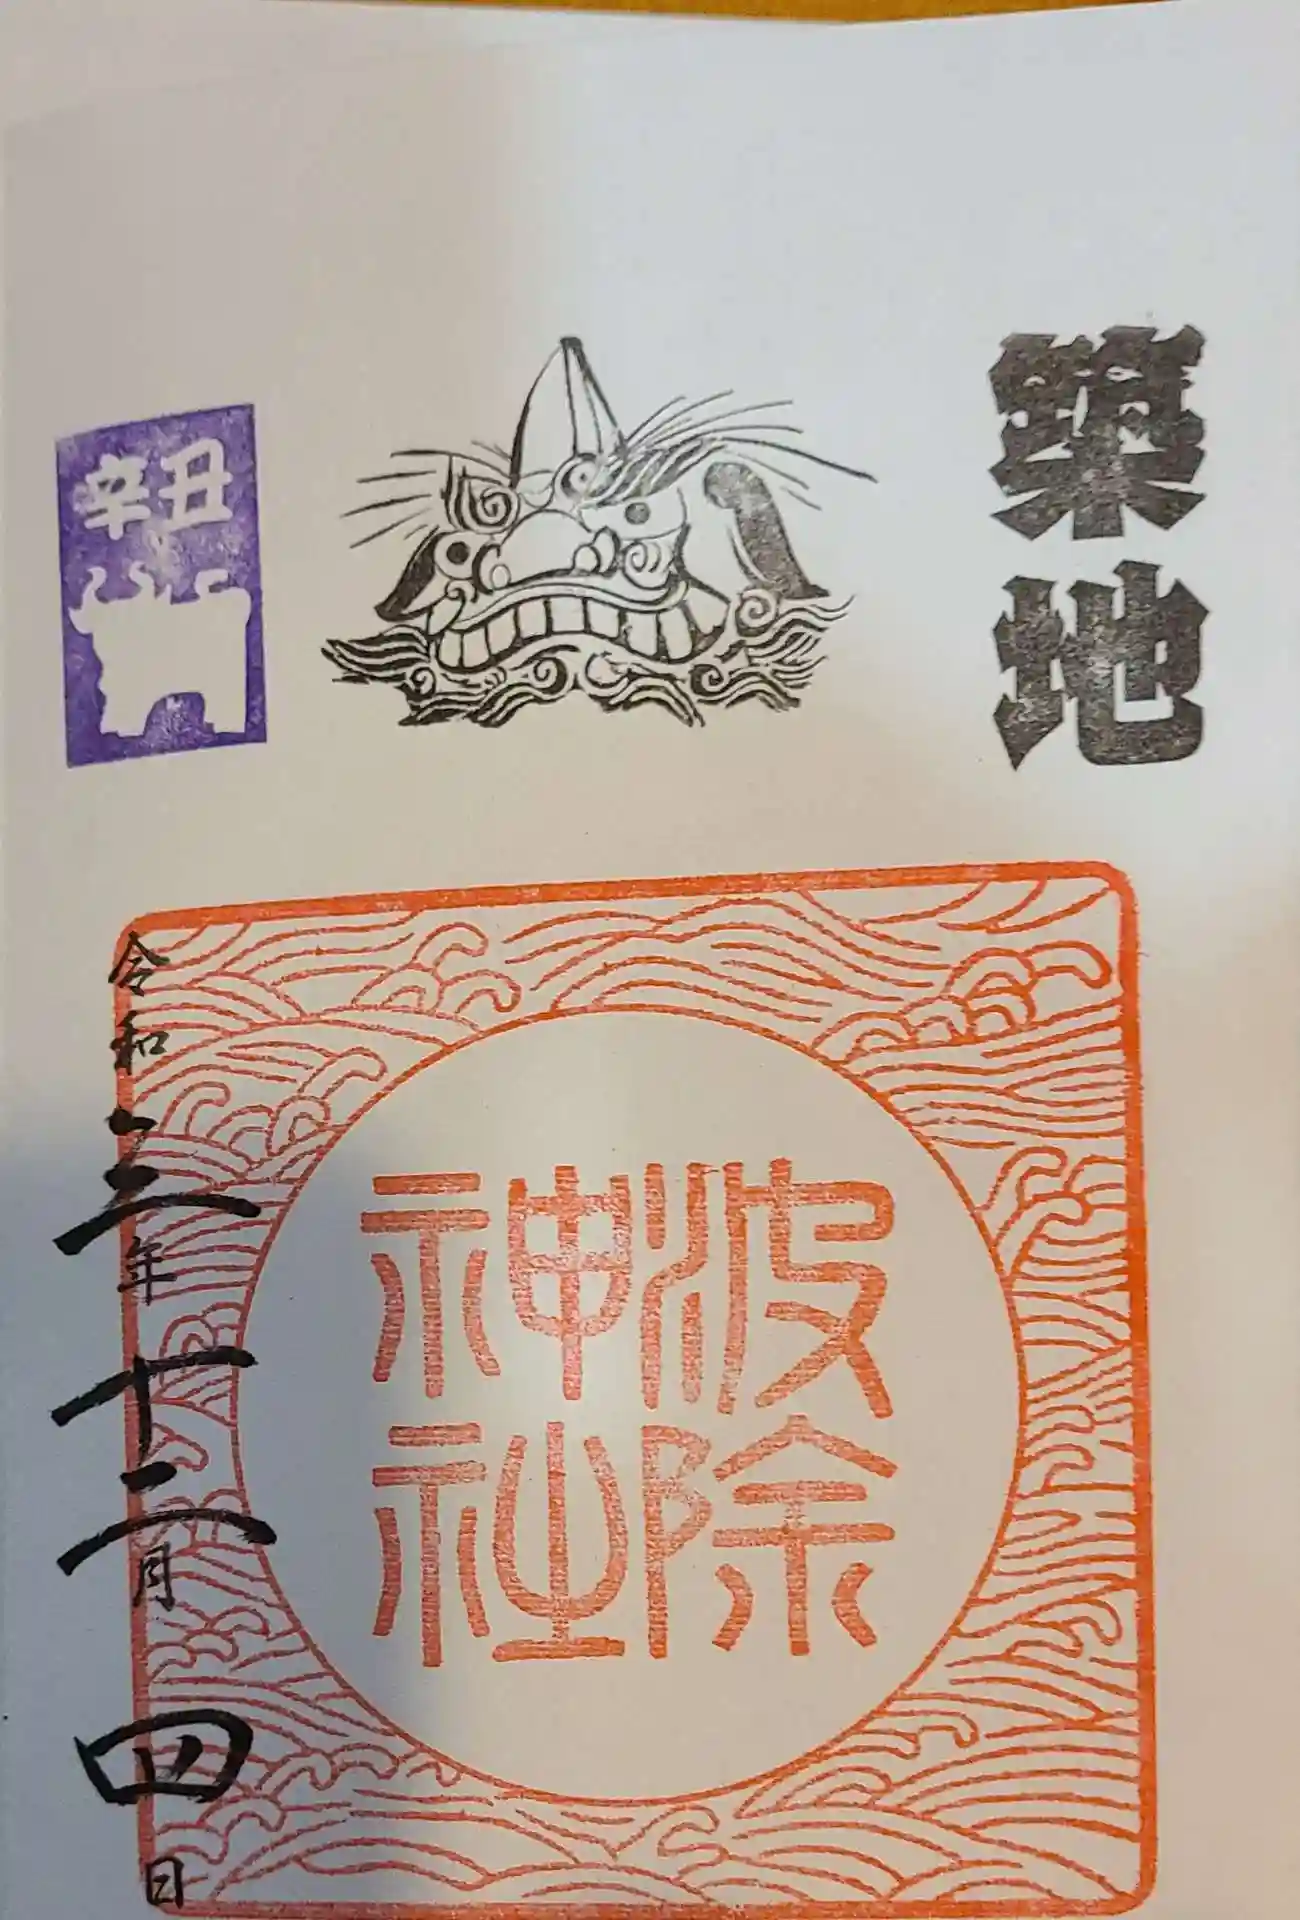 築地
波除
神社
辛丑
令和三年十二月四日